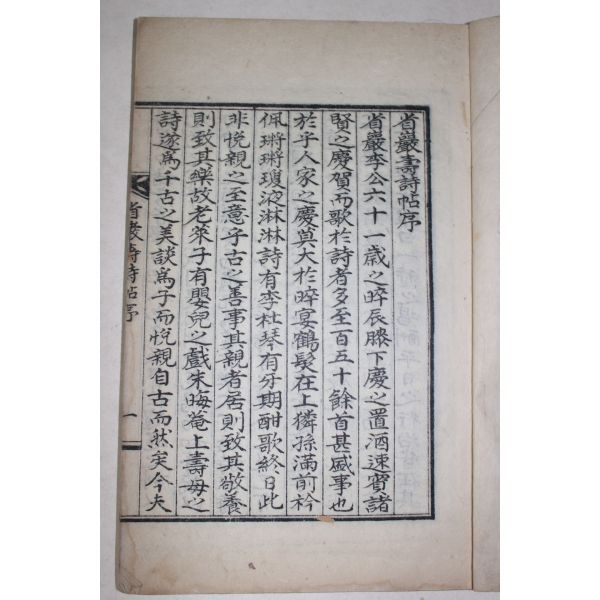 省巖壽詩帖序
省巖李公六十一歲之晬辰膝下慶之置酒速賓諸
賢之慶賀而歌於詩者多至百五十餘首甚盛事也
於乎人家之慶莫大於晬宴鶴髮在上獜孫滿前衿
佩將將瓊液淋淋詩有李杜琴有牙期酣歌終日此
非悅親之至意乎古之善事其親者居則致其敬養
則致其樂故老萊子有嬰兒之戲朱晦菴上壽母之
詩遂爲千古之美談爲子而悅親自古而然矣今夫
省巖壽詩帖序
一